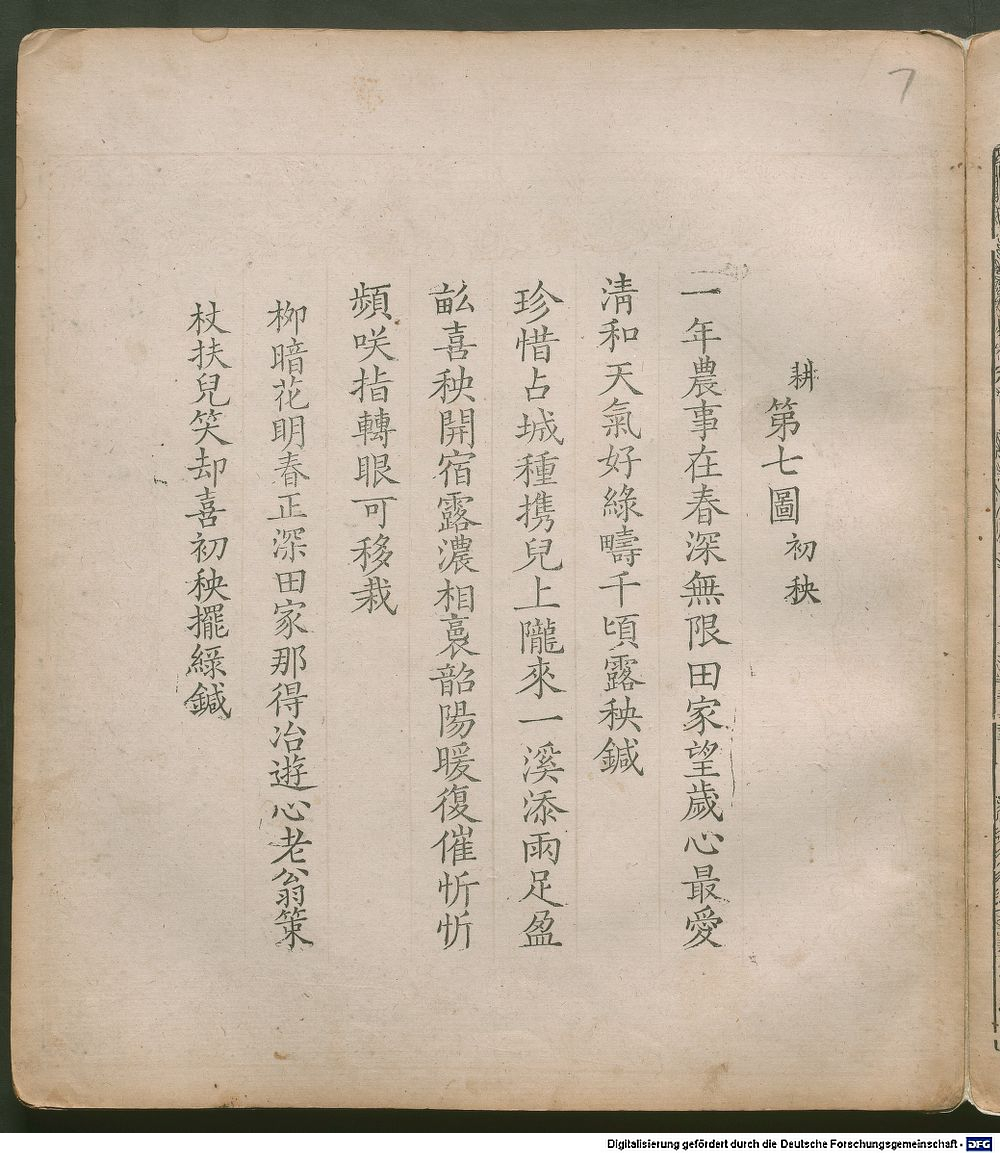 7
耕第七圖初秧
一年農事在春深無限田家望歲心最愛
清和天氣好綠疇千頃露秧鍼
珍惜占城種携兒上隴來一溪添雨足盈
畝喜秧開宿露濃相裛韶陽暖復催忻忻
頻咲指轉眼可移栽
柳暗花明春正深田家那得冶遊心老翁策
杖扶兒笑却喜初秧擺綠鍼
Digitalisierung gefördert durch die Deutsche Forschungsgemeinschaft - DFG